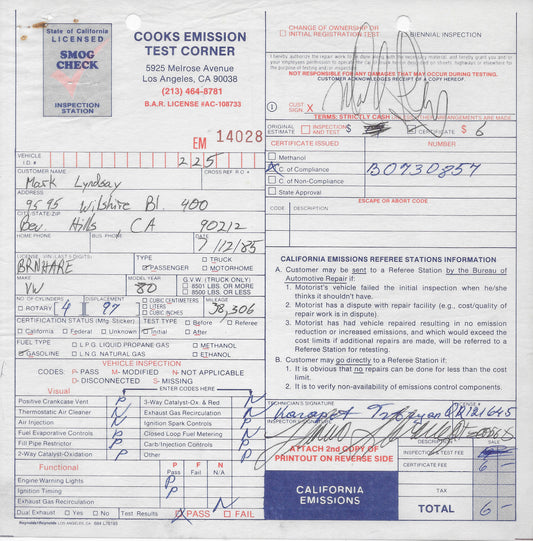 State of California
LICENSED
SMOG
CHECK
INSPECTION
STATION
COOKS EMISSION
TEST CORNER
5925 Melrose Avenue
Los Angeles, CA 90038
(213) 464-8781
B.A.R. LICENSE #AC-108733
EM 14028
VEHICLE I.D. # 225
CUSTOMER NAME CROSS REF. R.O. #
Mark Lyndsay
ADDRESS
9595 Wilshire Bl. 400
CITY/STATE/ZIP
Bev. Hills CA 90212
HOME PHONE BUS. PHONE DATE
7/12/85
LICENSE (VIN-LAST 5 DIGITS)
BRNHARE
TYPE
PASSENGER
TRUCK
MOTORHOME
MAKE
VW
MODEL YEAR
80
G.V.W. (TRUCK ONLY)
8501 LBS. OR MORE
8500 LBS. OR LESS
NO. OF CYLINDERS
ROTARY 4
DISPLACEMENT
97
CUBIC CENTIMETERS
LITERS
CUBIC INCHES
MILEAGE
38,306
CERTIFICATION STATUS (Mfg. Sticker)
California Federal Unknown
TEST TYPE Before Referee
Initial After
FUEL TYPE L.P.G. LIQUID PROPANE GAS METHANOL
GASOLINE L.N.G. NATURAL GAS ETHANOL
VEHICLE INSPECTION
CODES: P-PASS M-MODIFIED N-NOT APPLICABLE
D-DISCONNECTED S-MISSING
Visual ENTER CODES HERE
Positive Crankcase Vent P 3-Way Catalyst-Ox. & Red N
Thermostatic Air Cleaner N Exhaust Gas Recirculation N
Air Injection N Ignition Spark Controls P
Fuel Evaporative Controls P Closed Loop Fuel Metering N
Fill Pipe Restrictor P Carb/Injection Controls P
2-Way Catalyst-Oxidation P Other
Functional P Pass F Fail N N/A
Engine Warning Lights P
Ignition Timing P
Exhaust Gas Recirculation N
Dual Exhaust Yes No Test Results PASS FAIL
Reynolds+Reynolds LOS ANGELES, CA
CHANGE OF OWNERSHIP OR
INITIAL REGISTRATION TEST
BIENNIAL INSPECTION
I hereby authorize the repair work to be done along with the necessary material, and hereby grant you and/or
your employees permission to operate the car or truck herein described on streets, highways or elsewhere for
the purpose of testing and/or inspection.
NOT RESPONSIBLE FOR ANY DAMAGES THAT MAY OCCUR DURING TESTING.
CUSTOMER ACKNOWLEDGES RECEIPT OF A COPY HEREOF.
CUST SIGN. X
TERMS: STRICTLY CASH UNLESS OTHER ARRANGEMENTS ARE MADE
ORIGINAL ESTIMATE INSPECTION AND TEST $ CERTIFICATE $ 6
CERTIFICATE ISSUED NUMBER
Methanol
C. of Compliance B0730857
C. of Non-Compliance
State Approval
ESCAPE OR ABORT CODE
CODE DESCRIPTION
CALIFORNIA EMISSIONS REFEREE STATIONS INFORMATION
A. Customer may be sent to a Referee Station by the Bureau of
Automotive Repair if:
1. Motorist's vehicle failed the initial inspection when he/she
thinks it shouldn't have.
2. Motorist has a dispute with repair facility (e.g., cost/quality of
repair work is in dispute).
3. Motorist has vehicle repaired resulting in no emission
reduction or increased emissions, and which would exceed the
cost limits if additional repairs are made, will be referred to a
Referee Station for retesting.
B. Customer may go directly to a Referee Station if:
1. It is obvious that no repairs can be done for less than the cost
limit.
2. It is to verify non-availability of emissions control components.
TECHNICIAN'S SIGNATURE LICENSE #
INSPECTOR'S SIGNATURE
ATTACH 2nd COPY OF
PRINTOUT ON REVERSE SIDE
DESCRIPTION SALE
INSPECTION
CERTIFICATE FEE 6 —
CALIFORNIA
EMISSIONS
TAX
TOTAL 6 —